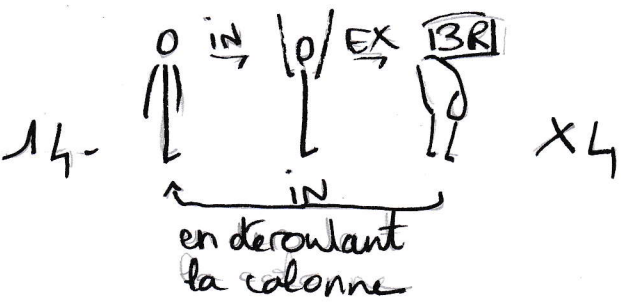 IN EX 3R
14- X4
IN
en deroulant
la colonne